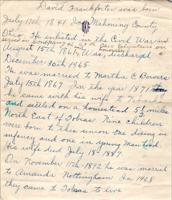 David Frankforter was born
July 10th 1841 In Mahoning County
Ohio. He enlisted in the Civil War and
August 15th 1862. Was discharged
December 30th 1865.
He was married to Martha E Bowers
July 15th 1867. In the year 1871
he came with his wife to
and settled on a homestead 5½ miles
North East of Tobias. Nine children
were born to this union one dying in
infancy and one in young manhood.
His wife died July 18th 1887.
On November 17th 1892 he was married
to Amanda Nottingham. In 1908
they came to Tobias to live